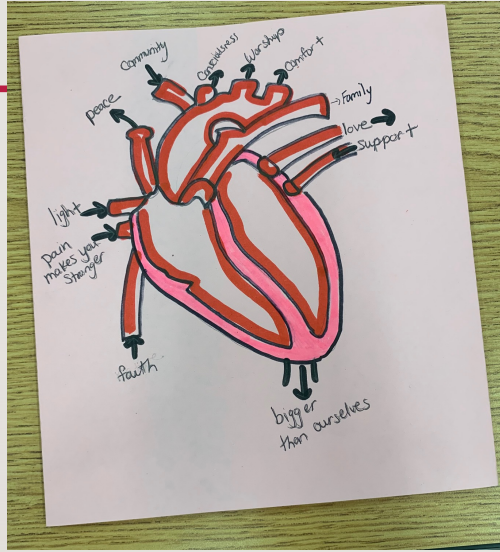 Community
Consciousness
Worship
Comfort
peace
Family
love
support
light
pain
makes you
Stronger
faith
bigger
than ourselves